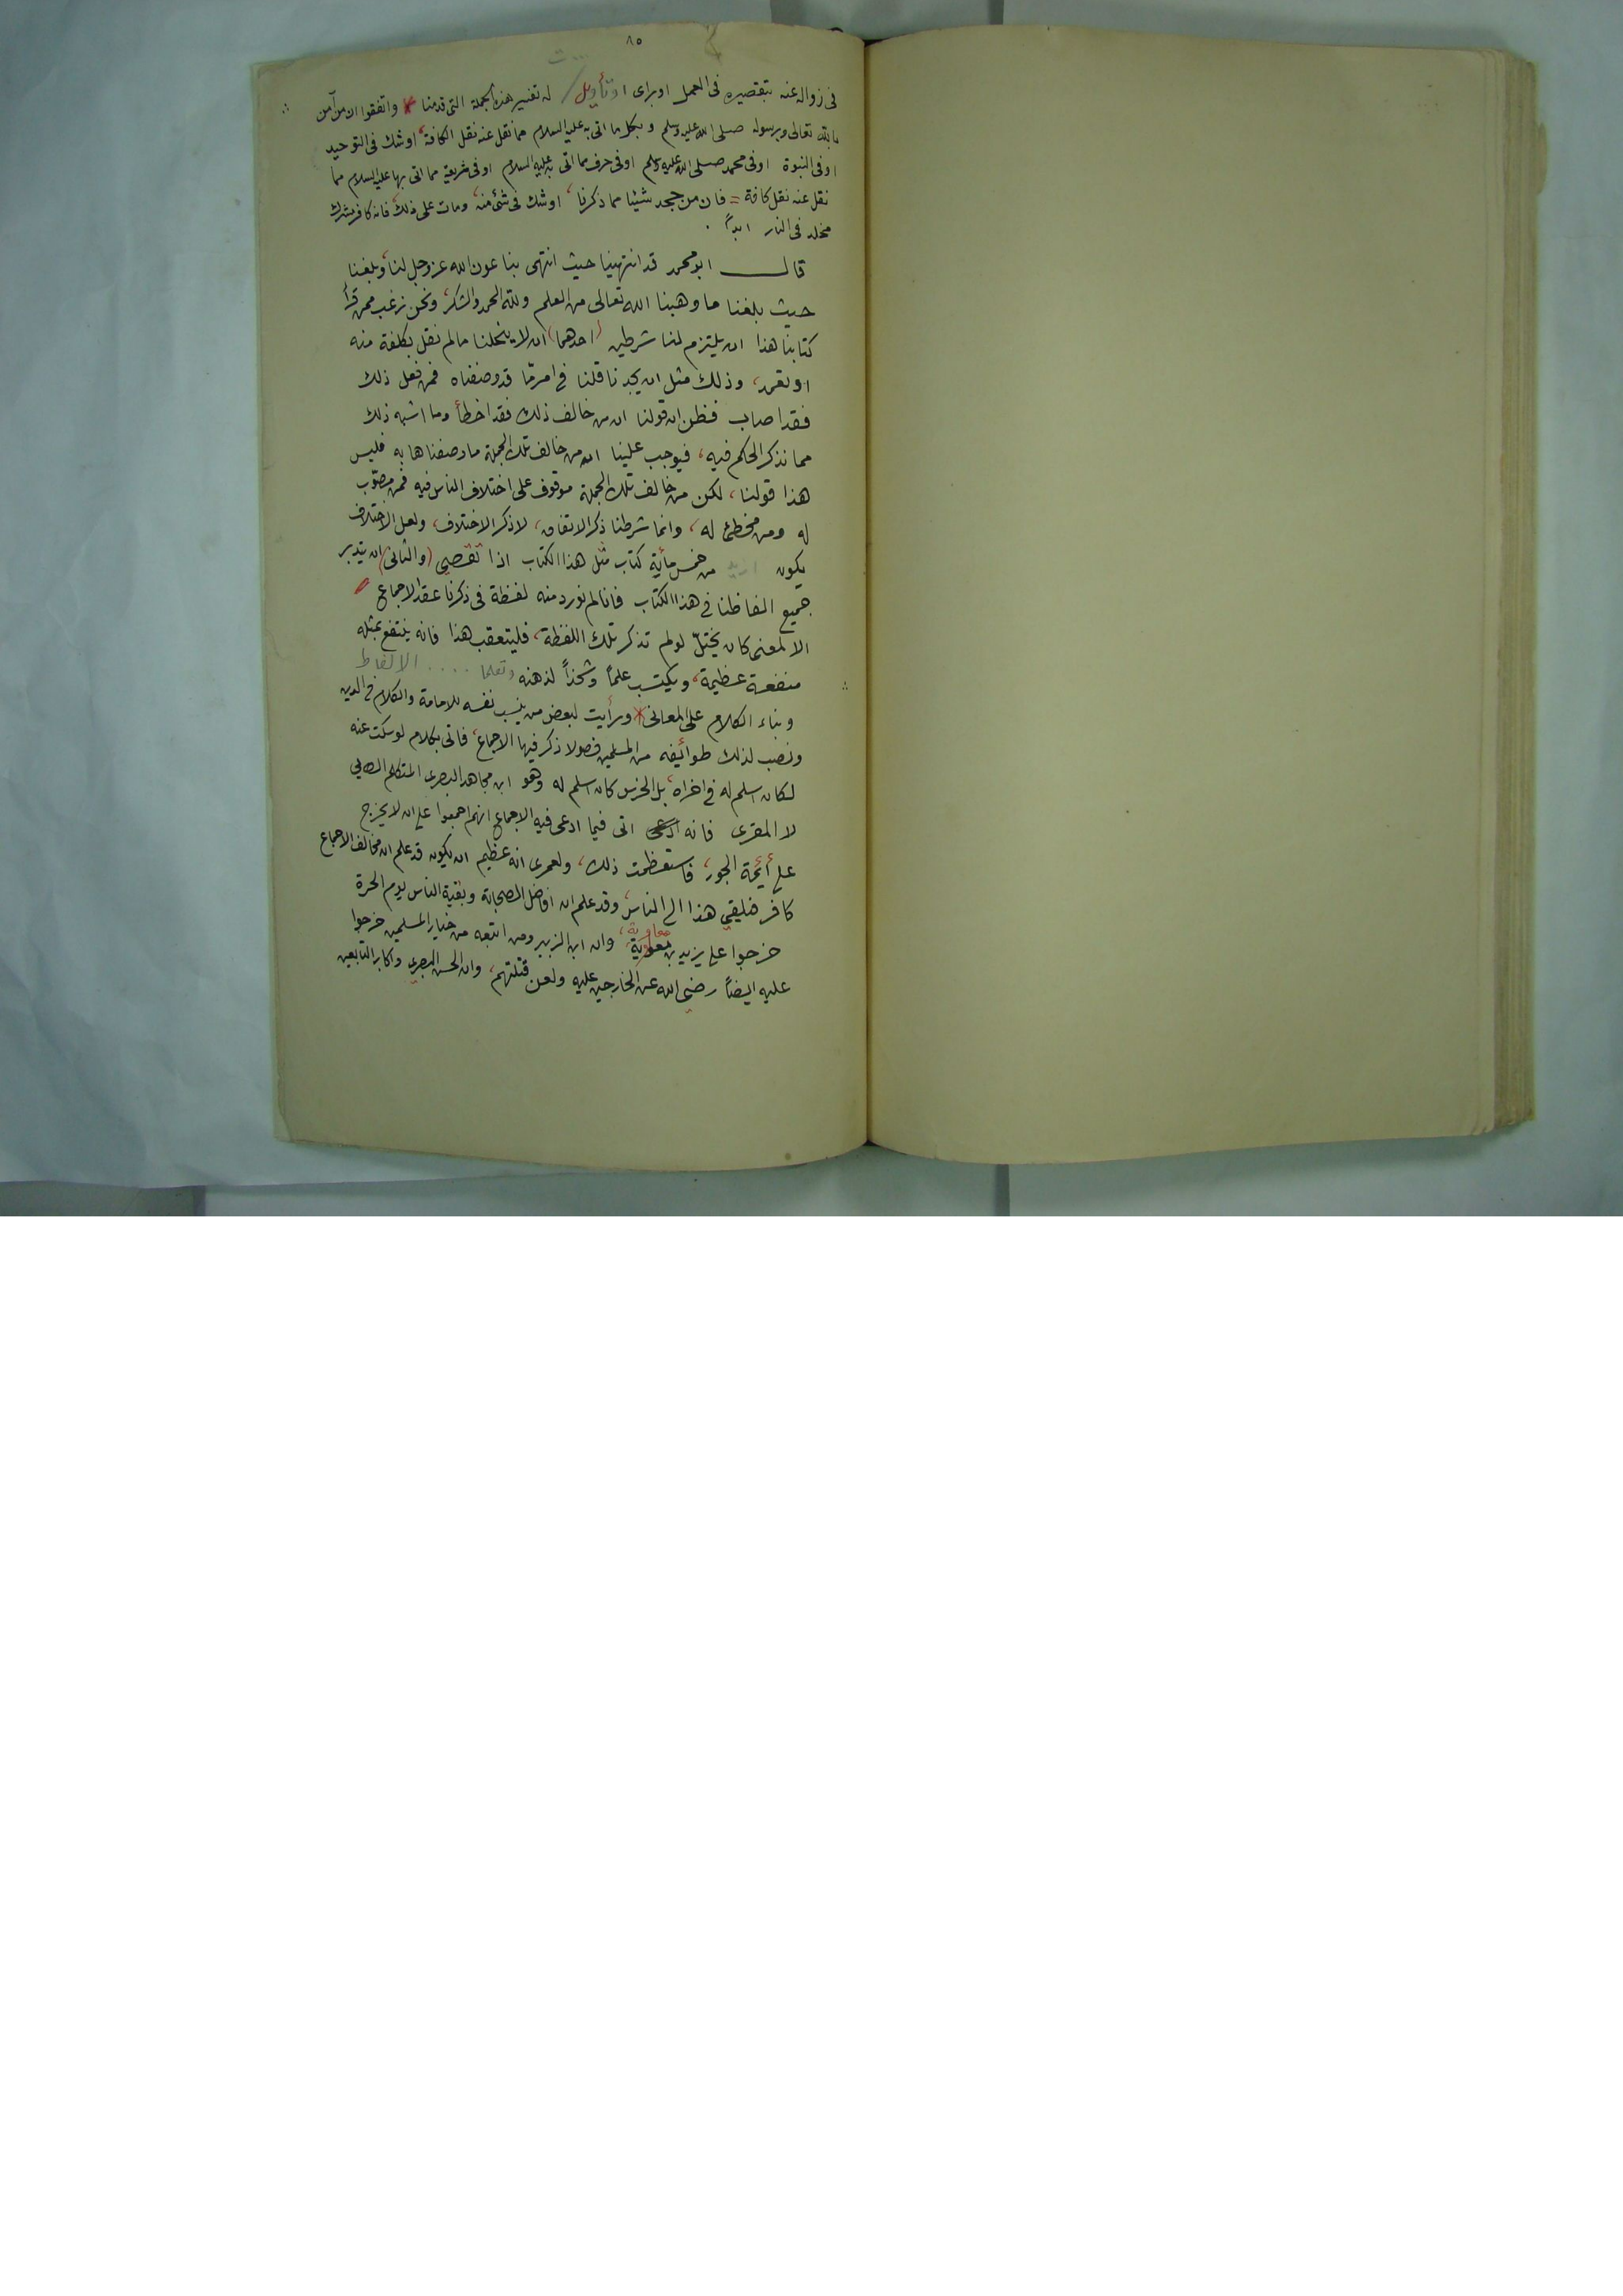 ٨٥
فى زواله عنه بتقصيره فى العمل او براى او تأويل له تفسير هذه الجملة التى قدمنا * واتفقوا ان من آمن
بالله تعالى وبرسوله صلى الله عليه وسلم وبكل ما اتى به عليه السلام مما نقل عنه نقل الكافة، اوشك فى التوحيد
او فى النبوة او فى محمد صلى الله عليه وسلم او فى حرف مما اتى به عليه السلام او فى شريعة مما اتى بها عليه السلام مما
نقل عنه نقل كافة = فان من جحد شيئا مما ذكرنا، اوشك فى شئ منه، ومات على ذلك، فانه كافر مشرك
مخلد فى النار ابداً .
قال ابو محمد قد انتهينا حيث انتهى بنا عون الله عز وجل لنا، وبلغنا
حيث بلغنا ما وهبنا الله تعالى من العلم ولله الحمد والشكر، ونحن نرغب ممن قرأ
كتابنا هذا ان يلتزم لنا شرطين (احدهما) ان لا ينحلنا مالم نقل بكلفة منه
او تعمد، وذلك مثل ان يجدنا قلنا فى امر مّا قد وصفناه فمن فعل ذلك
فقد اصاب فظن ان قولنا ان من خالف ذلك فقد اخطأ وما اشبه ذلك
مما نذكر الحكم فيه، فيوجب علينا ان من خالف تلك الجملة ما وصفناها به فليس
هذا قولنا، لكن من خالف تلك الجملة موقوف على اختلاف الناس فيه فمن مصوّب
له ومن مخطئ له، وانما شرطنا ذكر الاتفاق، لا ذكر الاختلاف، ولعل الاختلاف
يكون ازيد من خمس مأية كتاب مثل هذا الكتاب اذا تقصى (والثانى) ان يتدبر
جميع الفاظنا فى هذا الكتاب فانا لم نورد منه لفظة فى ذكرنا عقد الاجماع
الا لمعنى كان يختلّ لو لم تذكر تلك اللفظة، فليتعقب هذا فانه ينتفع بمثله
منفعة عظيمة، ويكتسب علماً وشحذاً لذهنه وتعلما .... الالفاظ
وبناء الكلام على المعانى * ورأيت لبعض من ينسب نفسه للامامة والكلام فى الدين
ونصب لذلك طوائيفه من المسلمين فصولا ذكر فيها الاجماع، فاتى بكلام لو سكت عنه
لكان اسلم له فى اخراه، بل الخرس كان اسلم له وهو ابن مجاهد البصرى المتكلم الطائى
لا المقرى فانه ادعى اتى فيما ادعى فيه الاجماع انهم اجمعوا على ان لا يخرج
على أئمة الجور، فاستعظمت ذلك، ولعمرى انه عظيم ان يكون قد علم ان مخالف الاجماع
كافر فليقي هذا الى الناس، وقد علم ان افاضل الصحابة وبقية الناس يوم الحرة
خرجوا على يزيد بن معوية معاوية، وان ابن الزبير ومن اتبعه من خيار المسلمين خرجوا
عليه ايضاً رضى الله عن الخارجين عليه ولعن قتلتهم، وان الحسن البصرى واكابر التابعين